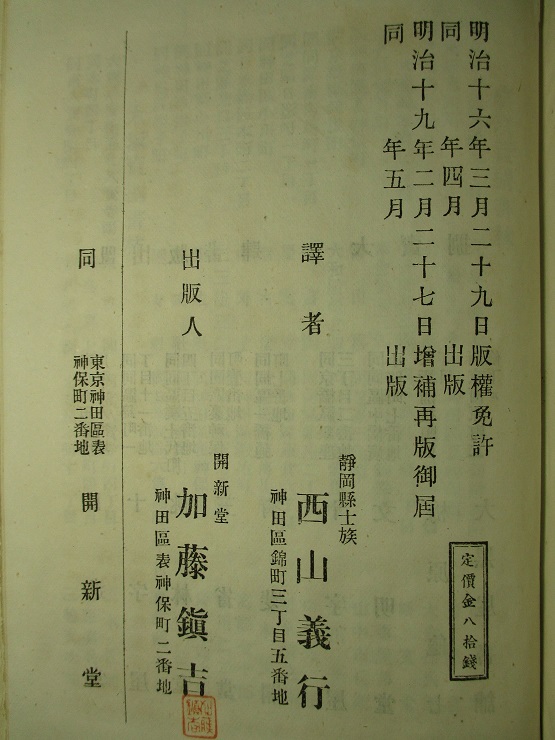 明治十六年三月二十九日版權免許
同年四月出版
明治十九年二月二十七日增補再版御屆
同年五月出版
定價金八拾錢
譯者
靜岡縣士族
西山義行
神田區錦町三丁目五番地
出版人
開新堂
加藤鎭吉
神田區表神保町二番地
同
東京神田區表
神保町二番地
開新堂